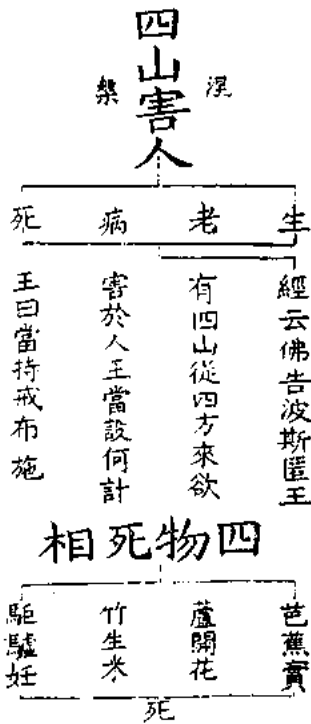 四山害人
涅槃
生
老
病
死
經云佛告波斯匿王
有四山從四方來欲
害於人王當設何計
王曰當持戒布施
四物死相
芭蕉實
蘆開花
竹生米
駏驉妊
死